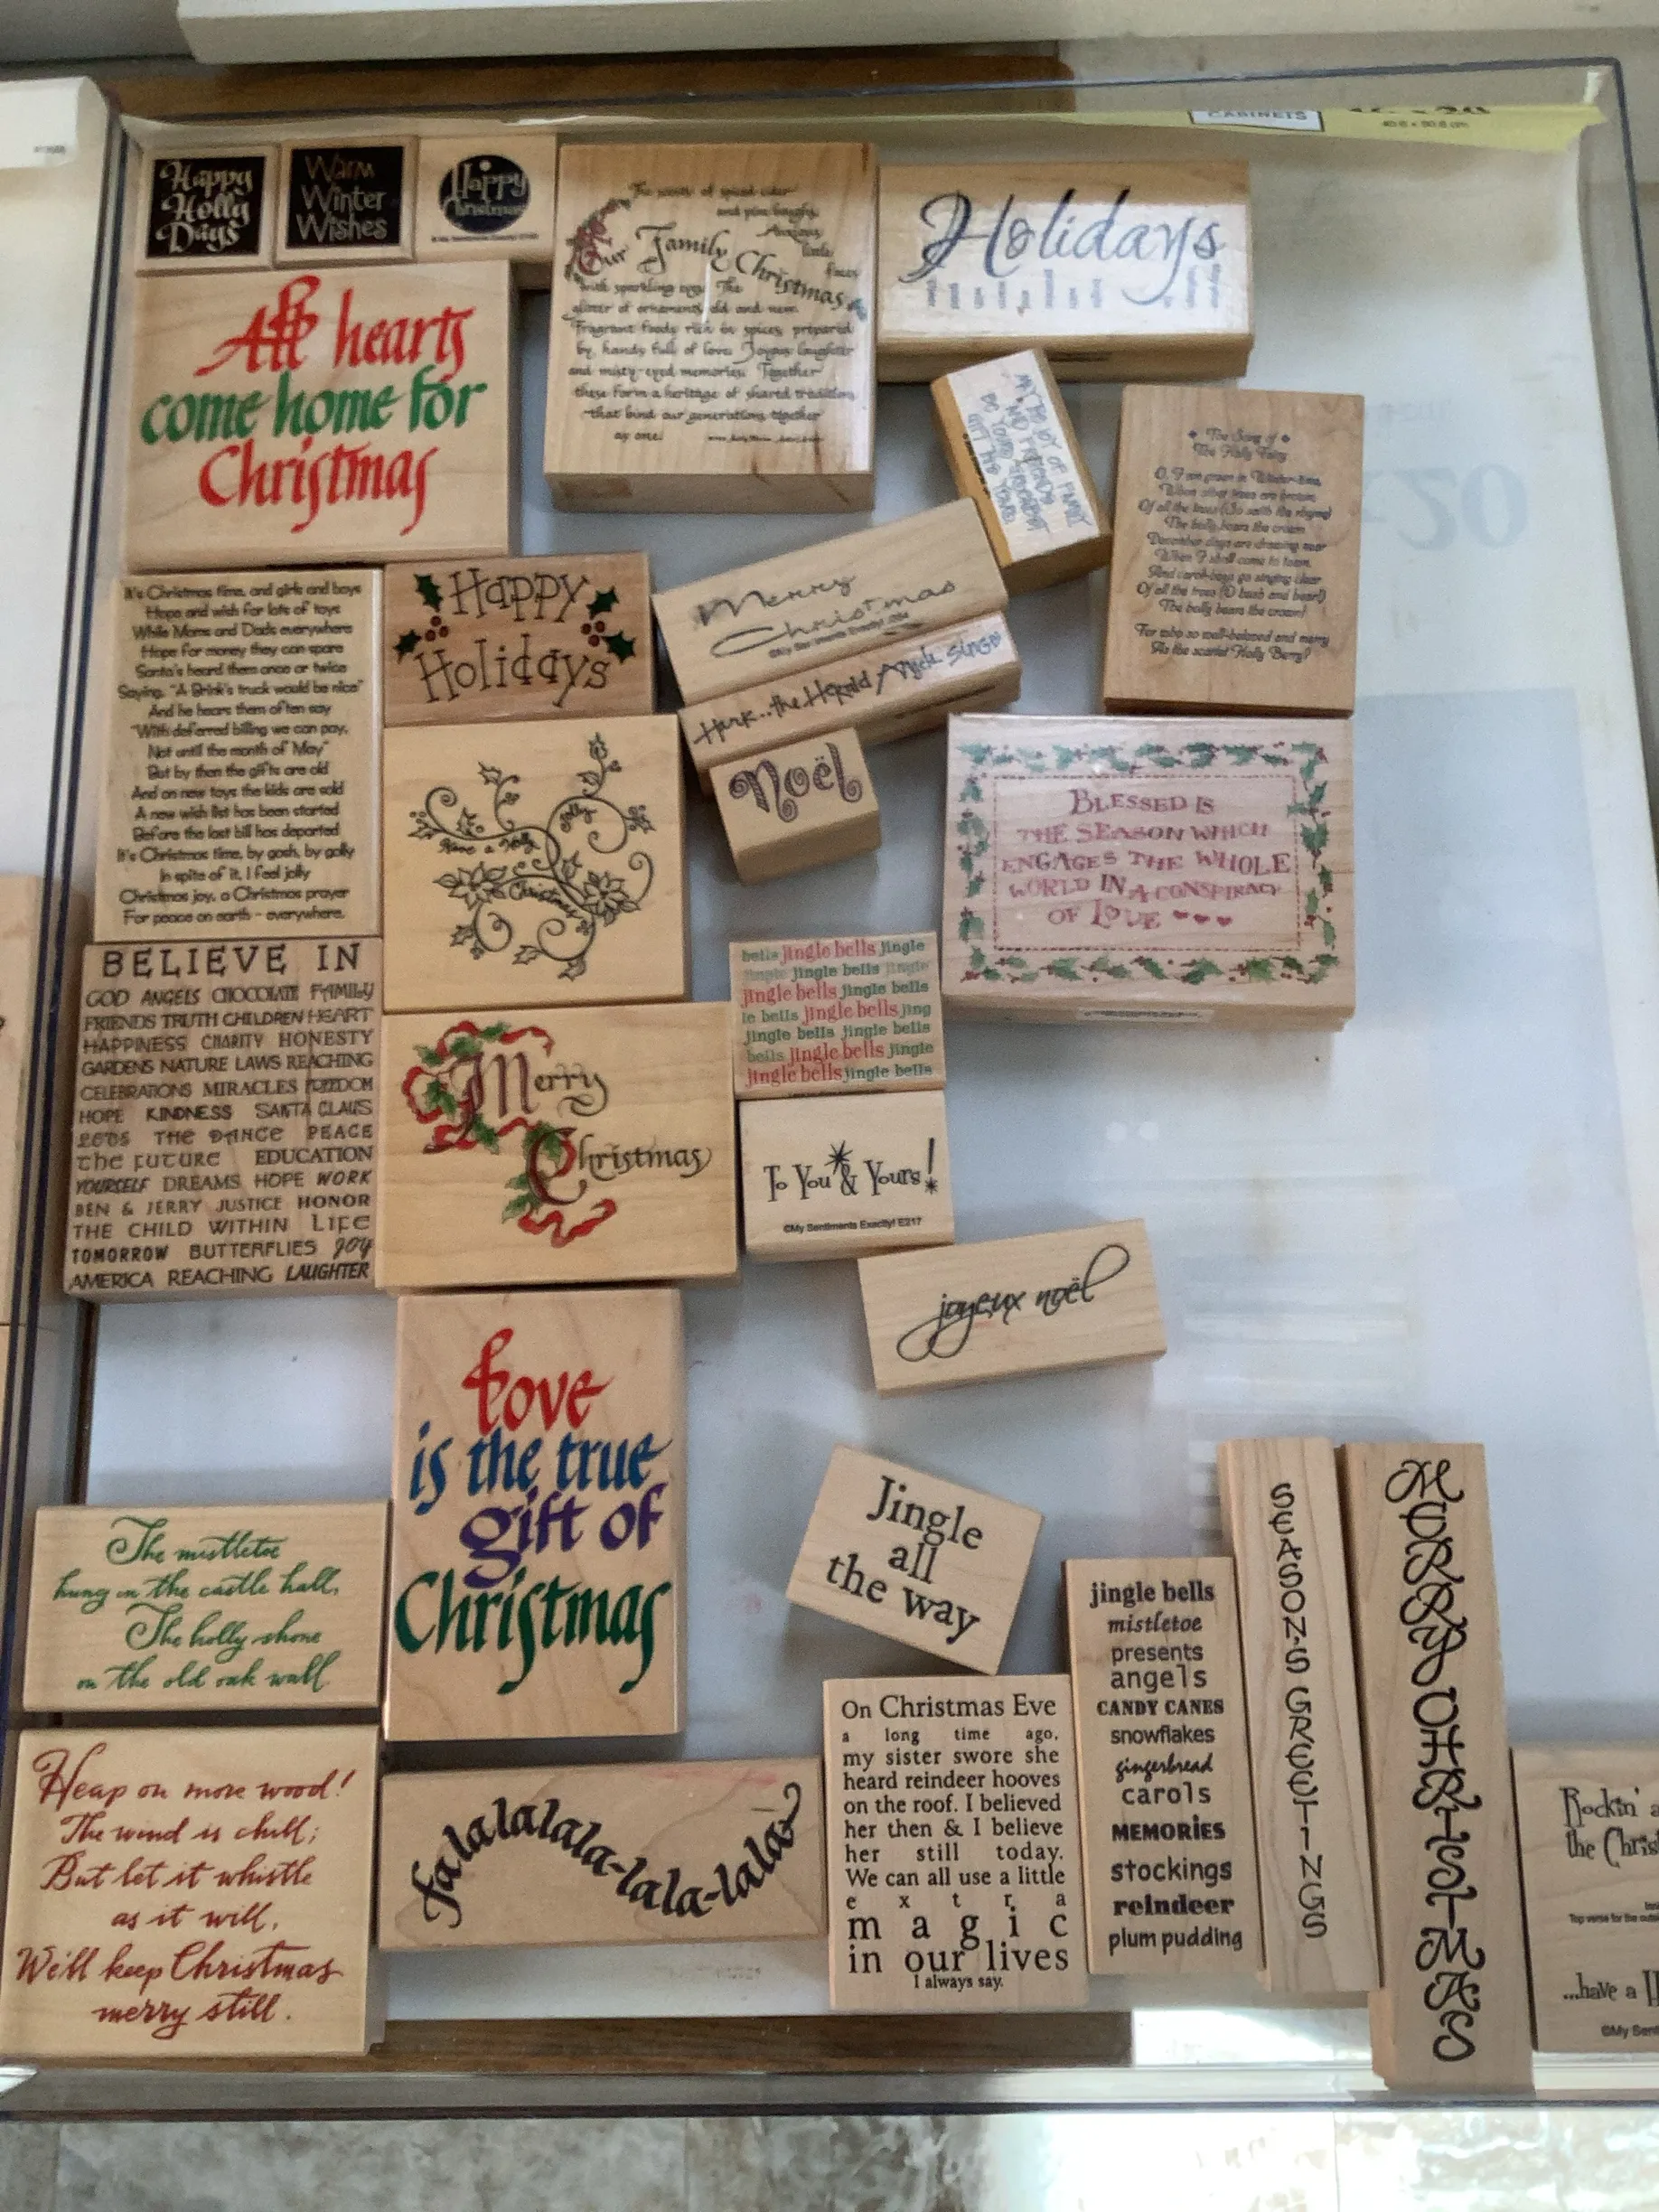 CABINETS
Happy
Holly
Days
Warm
Winter
Wishes
Happy
Christmas
The scents of spiced cider
and pine boughs.
Anxious
little
faces
Our Family Christmas
with sparkling eyes. The
glitter of ornaments old and new.
Fragrant foods rich in spices prepared
by hands full of love. Joyous laughter
and misty-eyed memories. Together
these form a heritage of shared traditions
that bind our generations together
as one.
Holidays
All hearts
come home for
Christmas
The Song of
The Holly Fairy
O, I am green in Winter-time,
When other trees are brown;
Of all the trees (So saith the rhyme)
The holly bears the crown.
December days are drawing near
When I shall come to town,
And carol-boys go singing clear
Of all the trees (O hush and hear!)
The holly bears the crown!
For who so well-beloved and merry
As the scarlet Holly Berry?
It's Christmas time, and girls and boys
Hope and wish for lots of toys
While Moms and Dads everywhere
Hope for money they can spare
Santa's heard them once or twice
Saying, "A Brink's truck would be nice"
And he hears them often say
"With deferred billing we can pay,
Not until the month of May"
But by then the gifts are old
And on new toys the kids are sold
A new wish list has been started
Before the last bill has departed
It's Christmas time, by gosh, by golly
In spite of it, I feel jolly
Christmas joy, a Christmas prayer
For peace on earth - everywhere.
Happy
Holidays
Merry
Christmas
©My Sentiments Exactly!
Hark...the Herald Angels Sings
Noël
Have a Holly
Jolly
Christmas
BLESSED IS
THE SEASON WHICH
ENGAGES THE WHOLE
WORLD IN A CONSPIRACY
OF LOVE
BELIEVE IN
GOD ANGELS CHOCOLATE FAMILY
FRIENDS TRUTH CHILDREN HEART
HAPPINESS CHARITY HONESTY
GARDENS NATURE LAWS REACHING
CELEBRATIONS MIRACLES FREEDOM
HOPE KINDNESS SANTA CLAUS
THE DANCE PEACE
The FUTURE EDUCATION
YOURSELF DREAMS HOPE WORK
BEN & JERRY JUSTICE HONOR
THE CHILD WITHIN LIFE
TOMORROW BUTTERFLIES JOY
AMERICA REACHING LAUGHTER
bells jingle bells jingle
jingle jingle bells jingle
jingle bells jingle bells
le bells jingle bells jing
jingle bells jingle bells
bells jingle bells jingle
jingle bells jingle bells
Merry
Christmas
To You & Yours!
©My Sentiments Exactly! E217
joyeux noël
Love
is the true
gift of
Christmas
Jingle
all
the way
The mistletoe
hung in the castle hall,
The holly shone
on the old oak wall
jingle bells
mistletoe
presents
angels
CANDY CANES
snowflakes
gingerbread
carols
MEMORIES
stockings
reindeer
plum pudding
SEASON'S GREETINGS
MERRY CHRISTMAS
Heap on more wood!
The wind is chill;
But let it whistle
as it will,
We'll keep Christmas
merry still.
falalalalala-lala-lala
On Christmas Eve
a long time ago,
my sister swore she
heard reindeer hooves
on the roof. I believed
her then & I believe
her still today.
We can all use a little
e x t r a
m a g i c
in our lives
I always say.
Rockin' a
the Chris
Top verse for the outs
...have a H
©My Sent